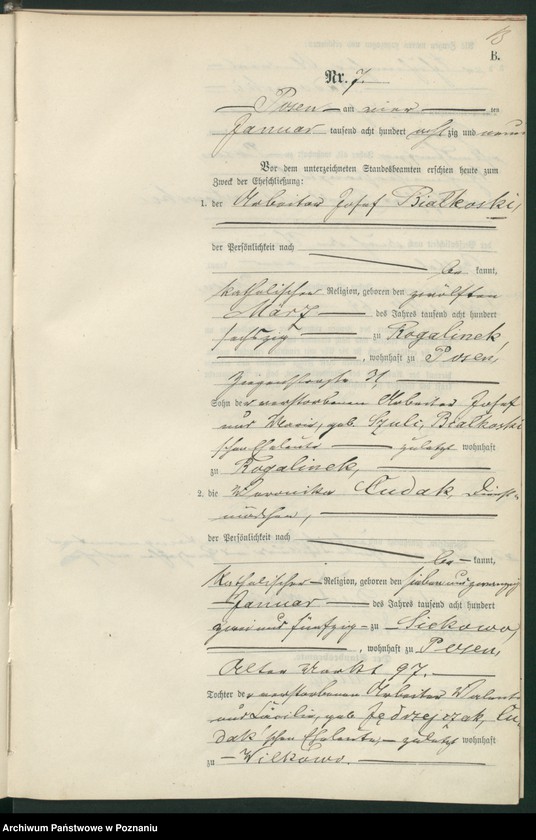 13
B.
Nr. 7.
Posen am vier ten
Januar tausend acht hundert achtzig und neun
Vor dem unterzeichneten Standesbeamten erschien heute zum
Zweck der Eheschließung:
1. der Arbeiter Josef Białkoski,
der Persönlichkeit nach
be kannt,
katholischer Religion, geboren den zwölften
März des Jahres tausend acht hundert
sechzig zu Rogalinek
, wohnhaft zu Posen,
Sohn der verstorbenen Arbeiter Josef
und Maria, geb. Szuli, Białkoski
schen Eheleute zuletzt wohnhaft
zu Rogalinek,
2. die Veronika Cudak, Dienst-
mädchen,
der Persönlichkeit nach
be kannt,
katholischer Religion, geboren den sieben und zwanzig
Januar des Jahres tausend acht hundert
zwei und fünfzig zu Siekowo,
, wohnhaft zu Posen,
Alter Markt 97.
Tochter der verstorbenen Arbeiter Valentin
und Cäcilie, geb. Jędrzejczak, Cu-
dak'schen Eheleute, zuletzt wohnhaft
zu Wilkowo.
Archiwum Państwowe w Poznaniu